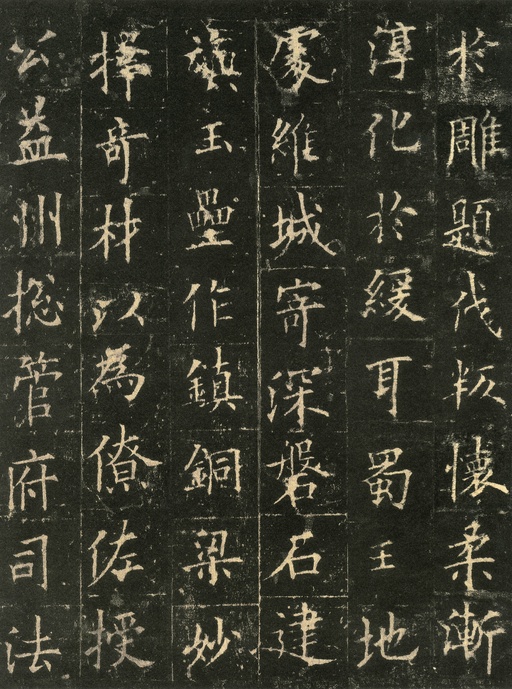 於雕題伐叛懷柔漸
淳化於緩耳蜀王地
處維城寄深磐石建
旟玉壘作鎮銅梁妙
擇奇材以為僚佐授
公益州摠管府司法